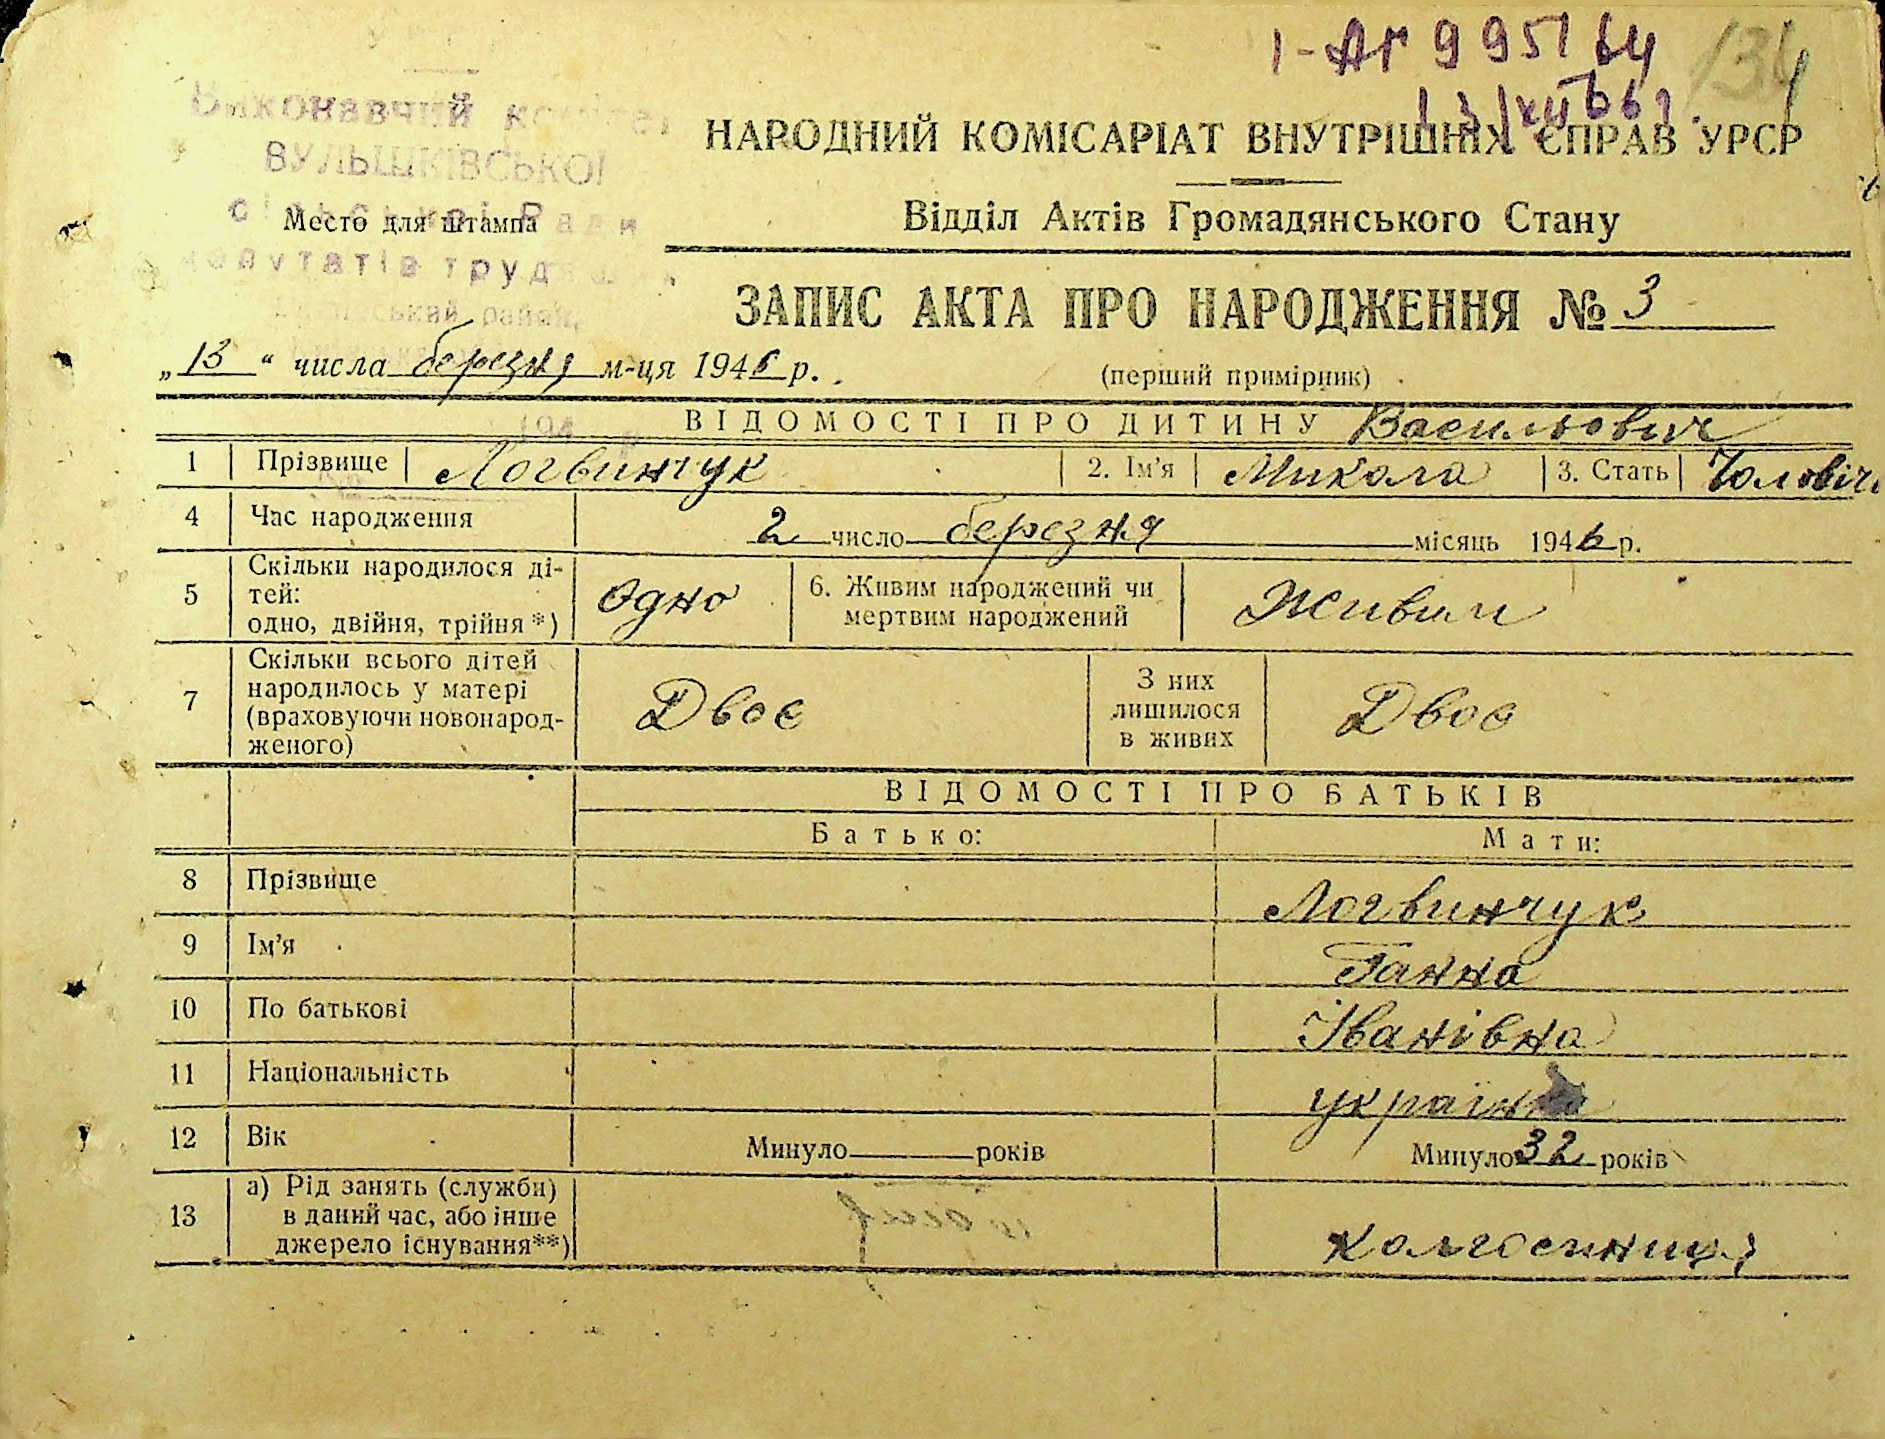 1-АГ 995164 134
13/XII 66 р.
Виконавчий комітет
ВУЛЬШКІВСЬКОЇ
сільської Ради
депутатів трудящих
район,
Место для штампа
НАРОДНИЙ КОМІСАРІАТ ВНУТРІШНІХ СПРАВ УРСР
Відділ Актів Громадянського Стану
ЗАПИС АКТА ПРО НАРОДЖЕННЯ № 3
„13“ числа березня м-ця 1946 р.
(перший примірник)
194
ВІДОМОСТІ ПРО ДИТИНУ Васильович
1 Прізвище Логвинчук 2. Ім’я Микола 3. Стать Чоловіч
4 Час народження 2 число березня місяць 1946 р.
5 Скільки народилося ді-
тей:
одно, двійня, трійня*) Одно 6. Живим народжений чи
мертвим народжений Живим
7 Скільки всього дітей
народилось у матері
(враховуючи новонарод-
женого) Двоє З них
лишилося
в живих Двоє
ВІДОМОСТІ ПРО БАТЬКІВ
Батько: Мати:
8 Прізвище Логвинчук
9 Ім’я Ганна
10 По батькові Іванівна
11 Національність українка
12 Вік Минуло років Минуло 32 років
13 а) Рід занять (служби)
в даний час, або інше
джерело існування**) колгоспниця